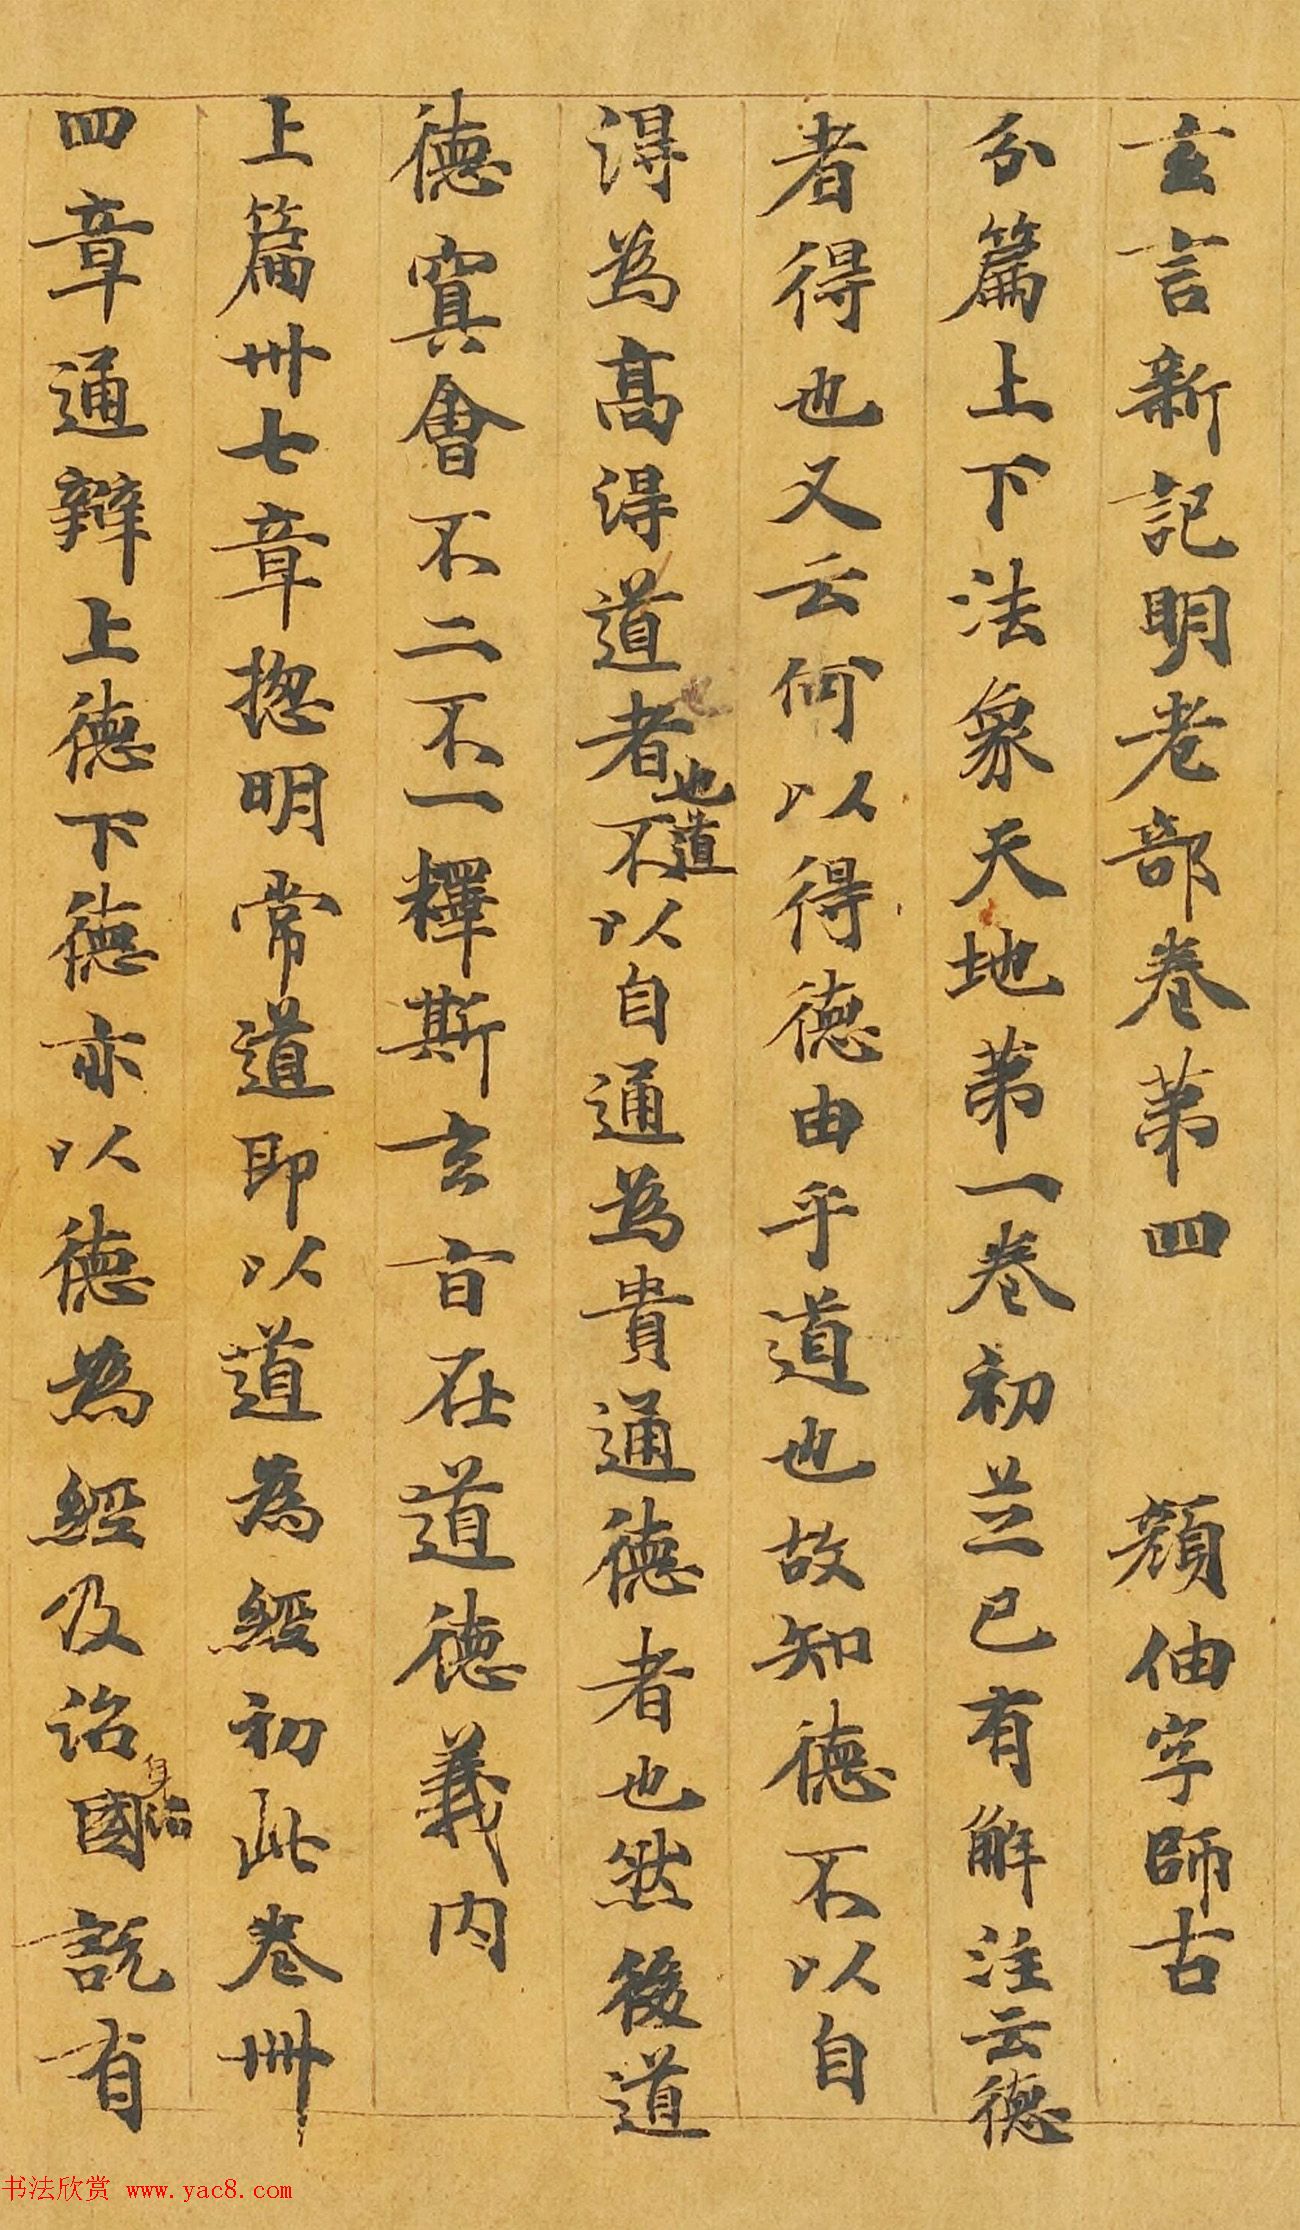 玄言新記明老部卷第四　顏伷字師古
分篇上下法象天地第一卷初並已有解注云德
者得也又云何以得德由乎道也故知德不以自
得為高得道者也道不以自通為貴通德者也然後道
德冥會不二不一釋斯玄旨在道德義內
上篇卅七章揔明常道即以道為經初此卷卌
四章通辯上德下德亦以德為經及治身治國說有
书法欣赏 www.yac8.com